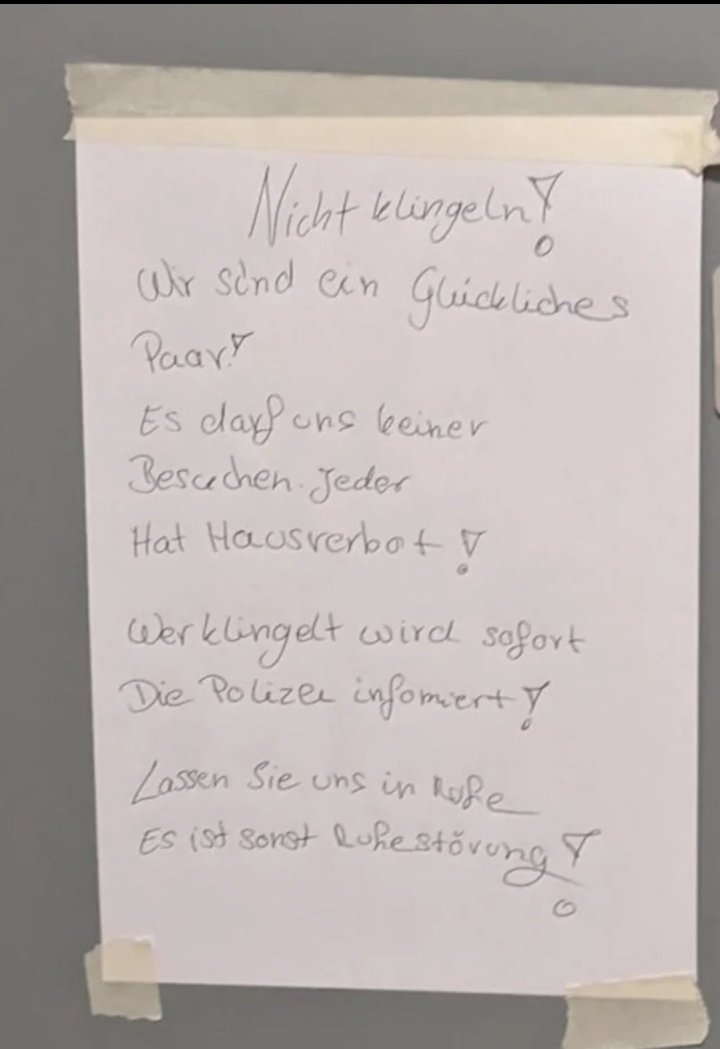 Nicht klingeln!
Wir sind ein Glückliches
Paar!
Es darf uns keiner
Besuchen. Jeder
Hat Hausverbot!
Wer klingelt wird sofort
Die Polizei infomiert!
Lassen Sie uns in Ruhe
Es ist sonst Ruhestörung!